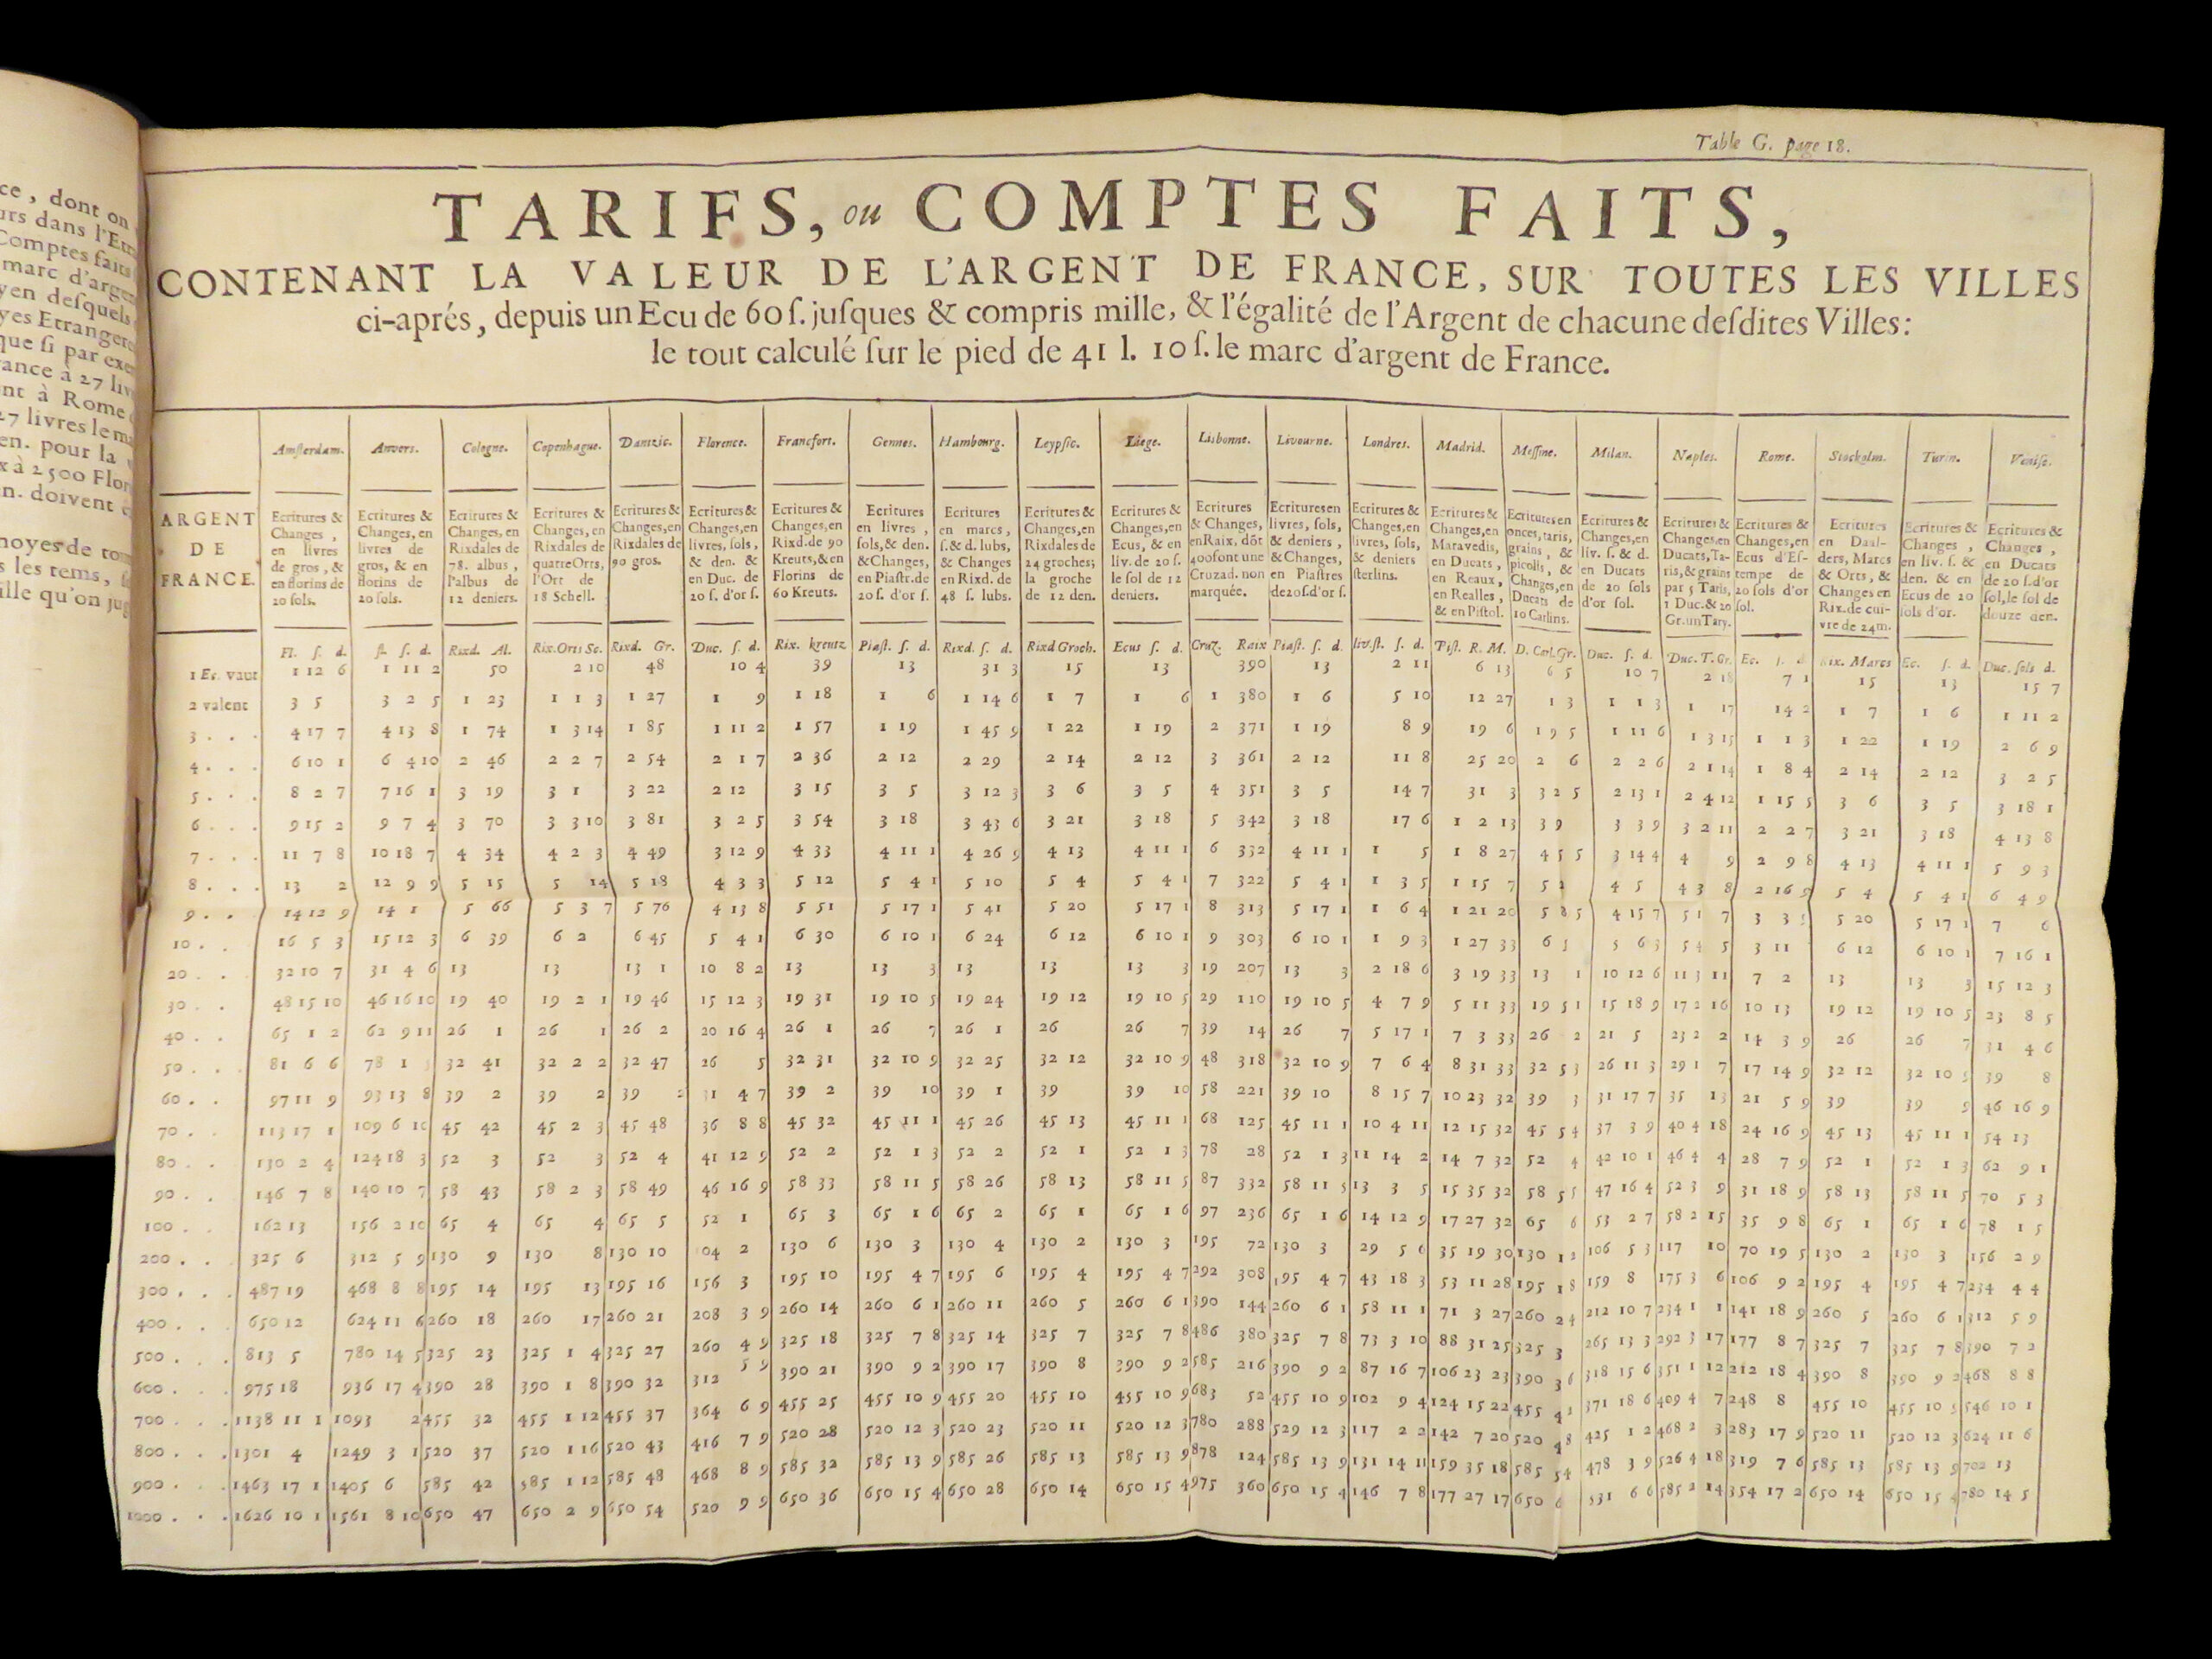 ce, dont on
urs dans l'Etr
Comptes faits
marc d'arge
yen deſquels
yes Etrangere
que ſi par exe
ance à 27 liv
nt à Rome
27 livres le m
en. pour la
x à 2500 Flor
n. doivent
noyes de to
s les tems,
ille qu'on jug
Table G. page 18.
TARIFS, ou COMPTES FAITS,
CONTENANT LA VALEUR DE L'ARGENT DE FRANCE, SUR TOUTES LES VILLES
ci-aprés, depuis un Ecu de 60 ſ. juſques & compris mille, & l'égalité de l'Argent de chacune deſdites Villes:
le tout calculé ſur le pied de 41 l. 10 ſ. le marc d'argent de France.
Amſterdam. Anvers. Cologne. Copenhague. Dantzic. Florence. Francfort. Gennes. Hambourg. Leypſic. Liege. Lisbonne. Livourne. Londres. Madrid. Meſſine. Milan. Naples. Rome. Stockolm. Turin. Veniſe.
ARGENT
DE
FRANCE.
Ecritures &
Changes,
en livres
de gros, &
en florins de
20 ſols.
Ecritures &
Changes, en
livres de
gros, & en
florins de
20 ſols.
Ecritures &
Changes, en
Rixdales de
78. albus,
l'albus de
12 deniers.
Ecritures &
Changes, en
Rixdales de
quatre Orts,
l'Ort de
18 Schell.
Ecritures &
Changes, en
Rixdales de
90 gros.
Ecritures &
Changes, en
livres, ſols,
& den. &
en Duc. de
20 ſ. d'or ſ.
Ecritures &
Changes, en
Rixd. de 90
Kreuts, & en
Florins de
60 Kreuts.
Ecritures
en livres,
ſols, & den.
& Changes,
en Piaſtr. de
20 ſ. d'or ſ.
Ecritures
en marcs,
ſ. & d. lubs,
& Changes
en Rixd. de
48 ſ. lubs.
Ecritures &
Changes, en
Rixdales de
24 groches;
la groche
de 12 den.
Ecritures &
Changes, en
Ecus, & en
liv. de 20 ſ.
le ſol de 12
deniers.
Ecritures
& Changes,
en Raix, dôt
400 font une
Cruzad. non
marquée.
Ecritures en
livres, ſols,
& deniers,
& Changes,
en Piaſtres
de 20 ſ. d'or ſ.
Ecritures &
Changes, en
livres, ſols,
& deniers
ſterlins.
Ecritures &
Changes, en
Maravedis,
en Ducats,
en Reaux,
en Realles,
& en Piſtol.
Ecritures en
onces, taris,
grains, &
picolis, &
Changes, en
Ducats de
10 Carlins.
Ecritures &
Changes, en
liv. ſ. & d.
en Ducats
de 20 ſols
d'or ſol.
Ecritures &
Changes, en
Ducats, Ta-
ris, & grains
par 5 Taris,
1 Duc. & 20
Gr. un Tary.
Ecritures &
Changes, en
Ecus d'Eſ-
tempe de
20 ſols d'or
ſol.
Ecritures
en Daal-
ders, Marcs
& Orts, &
Changes en
Rix. de cui-
vre de 24 m.
Ecritures &
Changes,
en liv. ſ. &
den. & en
Ecus de 20
ſols d'or.
Ecritures &
Changes,
en Ducats
de 20 ſ. d'or
ſol, le ſol de
douze den.
Fl. ſ. d. fl. ſ. d. Rixd. Al. Rix. Orts Sc. Rixd. Gr. Duc. ſ. d. Rix. kreutz Piaſt. ſ. d. Rixd. ſ. d. Rixd Groch. Ecus ſ. d. Cruz. Raix Piaſt. ſ. d. liv. ſt. ſ. d. Piſt. R. M. D. Carl. Gr. Duc. ſ. d. Duc. T. Gr. Ec. ſ. d. Rix. Marcs Ec. ſ. d. Duc. ſols d.
1 Ec. vaut 1 12 6 1 11 2 50 2 10 48 10 4 39 13 31 3 15 13 390 13 2 11 6 13 6 5 10 7 2 18 7 1 15 13 15 7
2 valent 3 5 3 2 5 1 23 1 1 3 1 27 1 9 1 18 1 6 1 14 6 1 7 1 6 1 380 1 6 5 10 12 27 1 3 1 1 3 1 17 14 2 1 7 1 6 1 11 2
3 . . . 4 17 7 4 13 8 1 74 1 3 14 1 85 1 11 2 1 57 1 19 1 45 9 1 22 1 19 2 371 1 19 8 9 19 6 1 9 5 1 11 6 1 3 15 1 1 3 1 22 1 19 2 6 9
4 . . . 6 10 1 6 4 10 2 46 2 2 7 2 54 2 1 7 2 36 2 12 2 29 2 14 2 12 3 361 2 12 11 8 25 20 2 6 2 2 6 2 1 14 1 8 4 2 14 2 12 3 2 5
5 . . . 8 2 7 7 16 1 3 19 3 1 3 22 2 12 3 15 3 5 3 12 3 3 6 3 5 4 351 3 5 14 7 31 3 3 2 5 2 13 1 2 4 12 1 15 5 3 6 3 5 3 18 1
6 . . . 9 15 2 9 7 4 3 70 3 3 10 3 81 3 2 5 3 54 3 18 3 43 6 3 21 3 18 5 342 3 18 17 6 1 2 13 3 9 3 3 9 3 2 11 2 2 7 3 21 3 18 4 13 8
7 . . . 11 7 8 10 18 7 4 34 4 2 3 4 49 3 12 9 4 33 4 11 1 4 26 9 4 13 4 11 1 6 332 4 11 1 1 5 1 8 27 4 5 5 3 14 4 4 9 2 9 8 4 13 4 11 1 5 9 3
8 . . . 13 2 12 9 9 5 15 5 14 5 18 4 3 3 5 12 5 4 1 5 10 5 4 5 4 1 7 322 5 4 1 1 3 5 1 15 7 5 2 4 5 4 3 8 2 16 9 5 4 5 4 1 6 4 9
9 . . 14 12 9 14 1 5 66 5 3 7 5 76 4 13 8 5 51 5 17 1 5 41 5 20 5 17 1 8 313 5 17 1 1 6 4 1 21 20 5 8 5 4 15 7 5 1 7 3 3 5 20 5 17 1 7 6
10 . . 16 5 3 15 12 3 6 39 6 2 6 45 5 4 1 6 30 6 10 1 6 24 6 12 6 10 1 9 303 6 10 1 1 9 3 1 27 33 6 5 5 6 3 5 4 5 3 11 6 12 6 10 1 7 16 1
20 . . 32 10 7 31 4 6 13 13 13 1 10 8 2 13 13 3 13 13 13 3 19 207 13 3 2 18 6 3 19 33 13 1 10 12 6 11 3 11 7 2 13 13 3 15 12 3
30 . . 48 15 10 46 16 10 19 40 19 2 1 19 46 15 12 3 19 31 19 10 5 19 24 19 12 19 10 5 29 110 19 10 5 4 7 9 5 11 33 19 5 1 15 18 9 17 2 16 10 13 19 12 19 10 5 23 8 5
40 . . 65 1 2 62 9 11 26 1 26 1 26 2 20 16 4 26 1 26 7 26 1 26 26 7 39 14 26 7 5 17 1 7 3 33 26 2 21 5 23 2 2 14 3 9 26 26 7 31 4 6
50 . . 81 6 6 78 1 32 41 32 2 2 32 47 26 5 32 31 32 10 9 32 25 32 12 32 10 9 48 318 32 10 9 7 6 4 8 31 33 32 5 3 26 11 3 29 1 7 17 14 9 32 12 32 10 39 8
60 . . 97 11 9 93 13 8 39 2 39 2 39 2 31 4 7 39 2 39 10 39 1 39 39 10 58 221 39 10 8 15 7 10 23 32 39 3 31 17 7 35 13 21 5 9 39 39 9 46 16 9
70 . . 113 17 1 109 6 10 45 42 45 2 3 45 48 36 8 8 45 32 45 11 1 45 26 45 13 45 11 1 68 125 45 11 1 10 4 11 12 15 32 45 5 4 37 3 9 40 4 18 24 16 9 45 13 45 11 1 54 13
80 . . 130 2 4 124 18 3 52 3 52 3 52 4 41 12 9 52 2 52 1 3 52 2 52 1 52 1 3 78 28 52 1 3 11 14 2 14 7 32 52 4 42 10 1 46 4 4 28 7 9 52 1 52 1 3 62 9 1
90 . . 146 7 8 140 10 7 58 43 58 2 3 58 49 46 16 9 58 33 58 11 5 58 26 58 13 58 11 5 87 332 58 11 5 13 3 5 15 35 32 58 5 5 47 16 4 52 3 9 31 18 9 58 13 58 11 5 70 5 3
100 . . 162 13 156 2 10 65 4 65 4 65 5 52 1 65 3 65 1 6 65 2 65 1 65 1 6 97 236 65 1 6 14 12 9 17 27 32 65 6 53 2 7 58 2 15 35 9 8 65 1 65 1 6 78 1 5
200 . . 325 6 312 5 9 130 9 130 8 130 10 04 2 130 6 130 3 130 4 130 2 130 3 195 72 130 3 29 5 6 35 19 30 130 12 106 5 3 117 10 70 19 5 130 2 130 3 156 2 9
300 . . . 487 19 468 8 8 195 14 195 13 195 16 156 3 195 10 195 4 7 195 6 195 4 195 4 7 292 308 195 4 7 43 18 3 53 11 28 195 18 159 8 175 3 6 106 9 2 195 4 195 4 7 234 4 4
400 . . . 650 12 624 11 6 260 18 260 17 260 21 208 3 9 260 14 260 6 1 260 11 260 5 260 6 1 390 144 260 6 1 58 11 1 71 3 27 260 24 212 10 7 234 1 1 141 18 9 260 5 260 6 1 312 5 9
500 . . . 813 5 780 14 5 325 23 325 1 4 325 27 260 4 9 325 18 325 7 8 325 14 325 7 325 7 8 486 380 325 7 8 73 3 10 88 31 25 325 3 265 13 3 292 3 17 177 8 7 325 7 325 7 8 390 7 2
600 . . . 975 18 936 17 4 390 28 390 1 8 390 32 312 5 9 390 21 390 9 2 390 17 390 8 390 9 2 585 216 390 9 2 87 16 7 106 23 23 390 36 318 15 6 351 1 12 212 18 4 390 8 390 9 2 468 8 8
700 . . . 1138 11 1 1093 2 455 32 455 1 12 455 37 364 6 9 455 25 455 10 9 455 20 455 10 455 10 9 683 52 455 10 9 102 9 4 124 15 22 455 42 371 18 6 409 4 7 248 8 455 10 455 10 546 10 1
800 . . . 1301 4 1249 3 1 520 37 520 1 16 520 43 416 7 9 520 28 520 12 3 520 23 520 11 520 12 3 780 288 529 12 3 117 2 2 142 7 20 520 48 425 1 2 468 2 3 283 17 9 520 11 520 12 3 624 11 6
900 . . . 1463 17 1 1405 6 585 42 585 1 12 585 48 468 8 9 585 32 585 13 9 585 26 585 13 585 13 9 878 124 585 13 9 131 14 11 159 35 18 585 54 478 3 9 526 4 18 319 7 6 585 13 585 13 9 702 13
1000 . . . 1626 10 1 1561 8 10 650 47 650 2 9 650 54 520 9 9 650 36 650 15 4 650 28 650 14 650 15 4 975 360 650 15 4 146 7 8 177 27 17 650 6 531 6 6 585 2 14 354 17 2 650 14 650 15 4 780 14 5